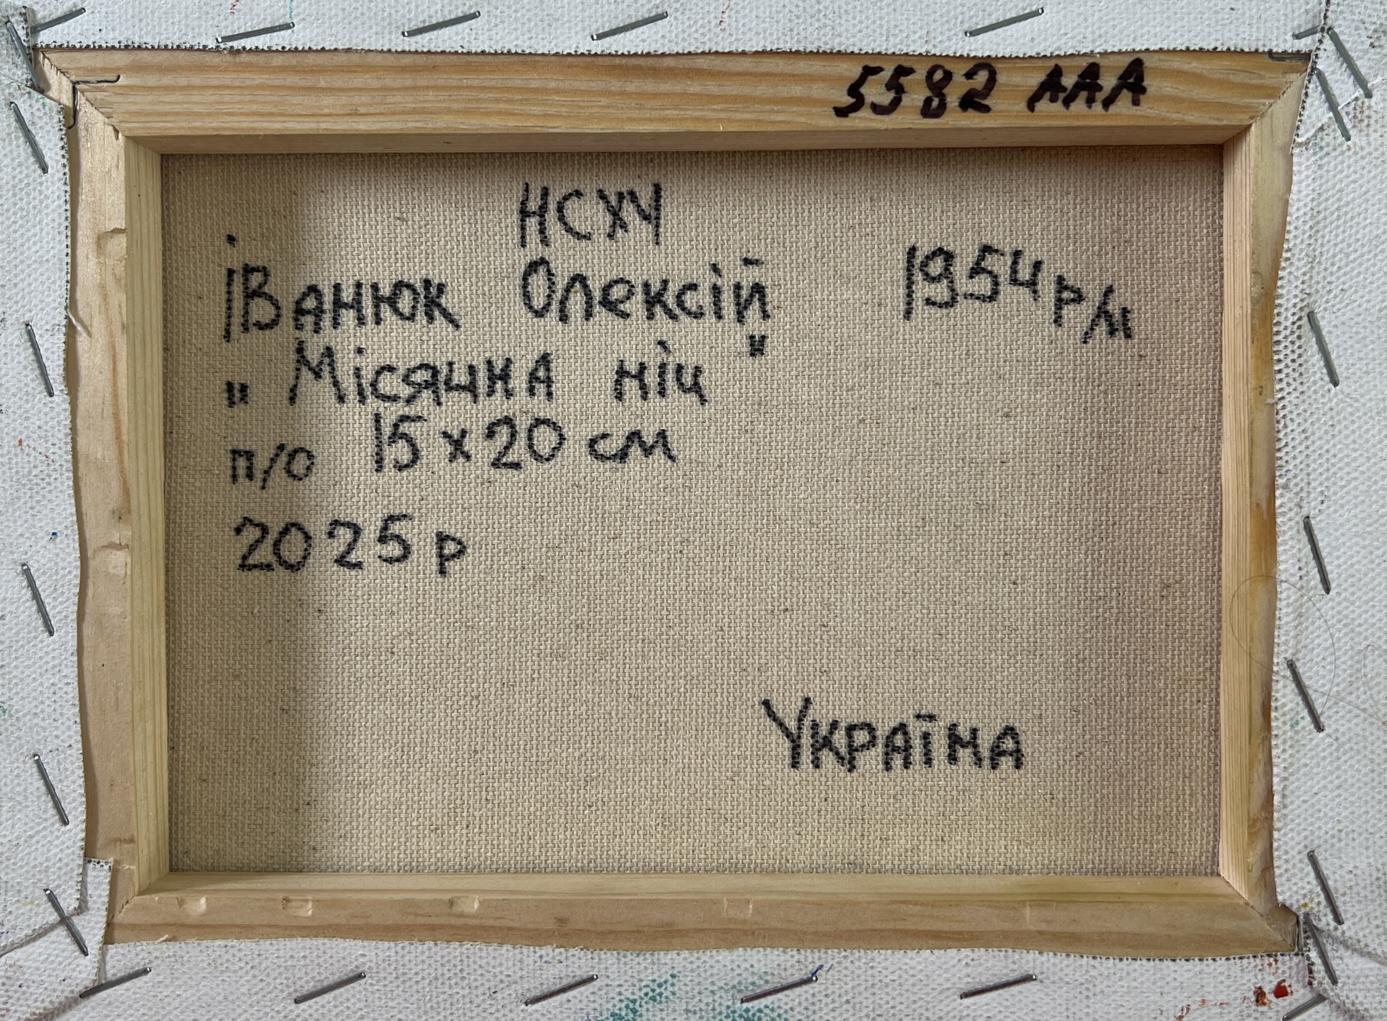 5582 ААА
НСХУ
Іванюк Олексій 1954 р/н
„Місячна ніч"
п/о 15х20 см
2025 р
Україна